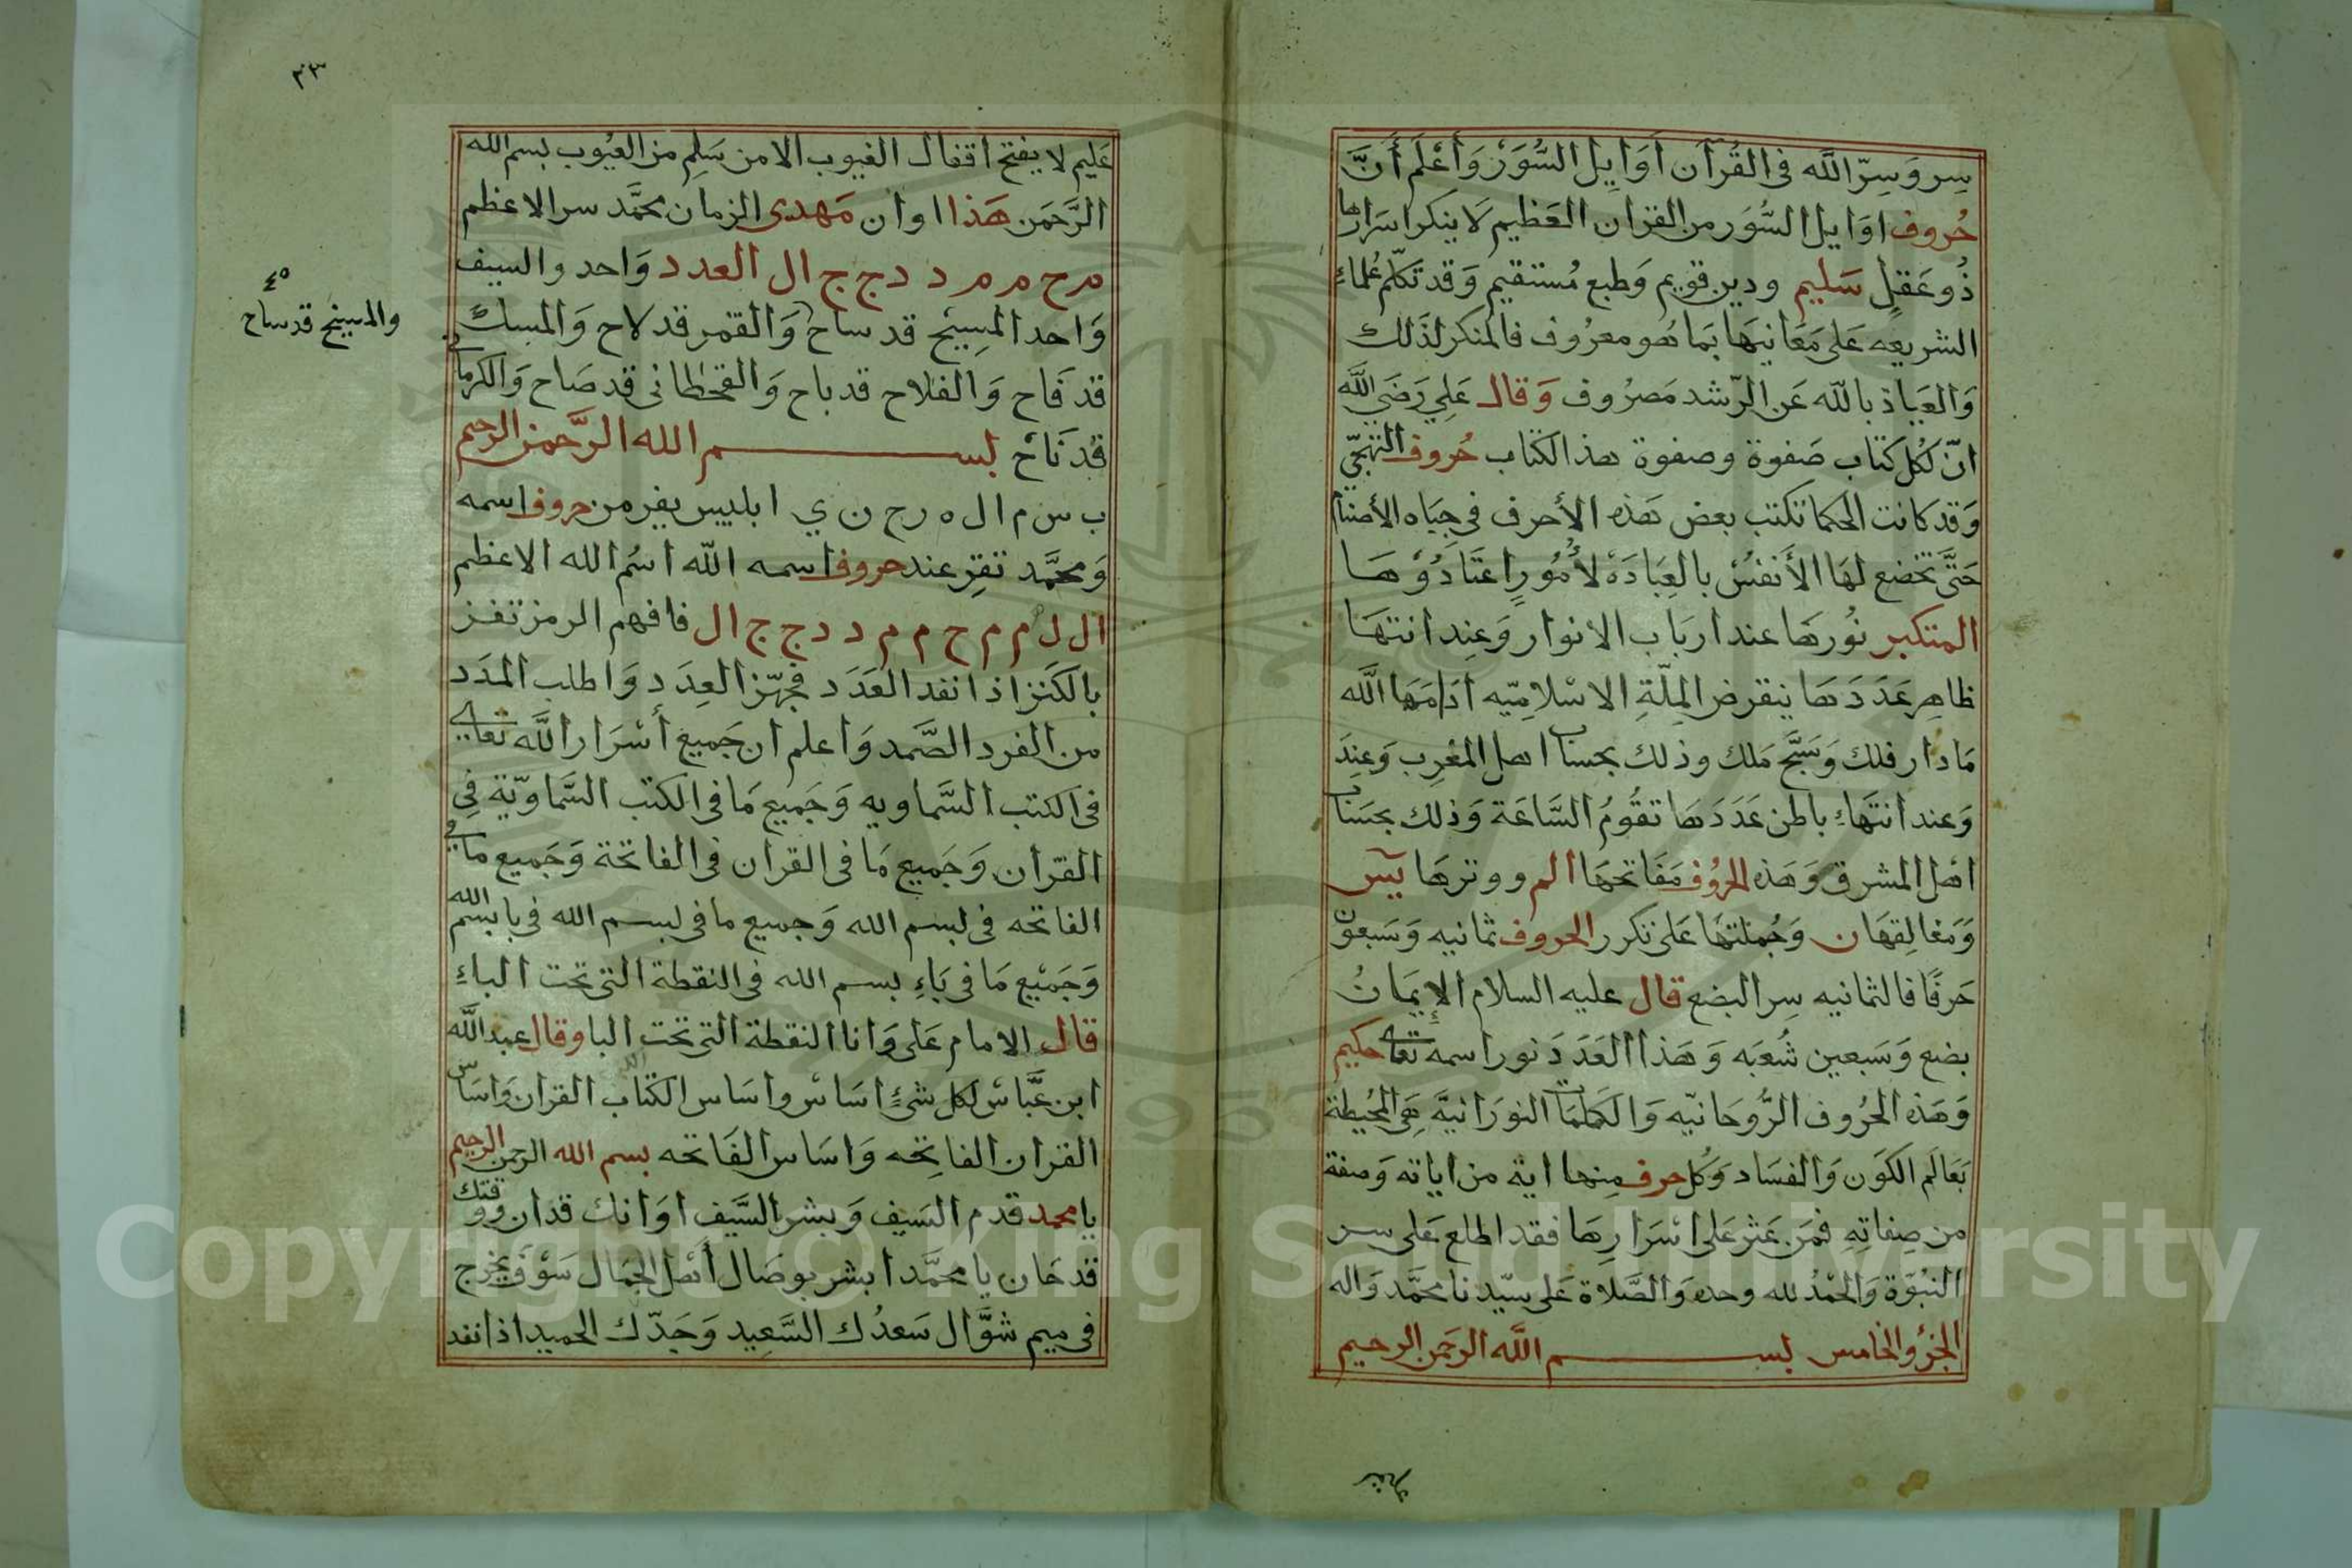 سِر وَسِرّ اللَّه فى القُرآن اَوَايِل السُّوَرْ وَاَعْلَم أَنَّ
حُروف اوَايل السُّوَر من القران العَظيم لَا ينكر اسَرارها
ذُو عَقلٍ سَليم ودين قويم وَطبع مُستقيم وَقد تكلّم عُلماءِ
الشريعه عَلى مَعَانيهَا بَما هو معرُوف فالمنكر لذَلك
وَالعيَاذ بالله عَن الرّشد مَصرُوف وَقال عَلِي رَضَي اللَّه
انّ لكُل كتاب صَفوة وصفوة هذ الكتاب حُروف التهجّي
وَقد كانت الحكما تكتب بعض هَذه الأحرف في جِبَاه الأصنام
حَتَّى تخضع لهَا الأَنفسُ بالعِبَادَه لأُمُورٍ اعتَادُوْهَا
المتكبر نُورهَا عند اربَاب الانوار وَعِند انتهَا
ظاهِر عَدَدَهَا ينقرض المِلّةِ الاسْلامِيّه أدَامَهَا اللَّه
مَا دَار فلك وَسَبَّح مَلك وذلك بحساب اهل المغرِب وَعِندَ
وَعند انتَهَاءِ باطن عَدَدَهَا تقُومُ السَّاعَة وَذلك بحسَاب
اهْل المشرق وَهَذه الحرُوف مَفَاتحهَا الم ووترهَا يس
وَمَغالِقهَا ن وَجُملتهَا عَلى تكرر الحروف ثمانيه وَسَبعون
حَرفًا فالثمانيه سِر البضع قال عليه السلام الإِيمَانُ
بضع وَسَبعين شُعبَه وَهَذا العَدَدَ نور اسمه تعالى حكيم
وَهَذه الحرُوف الرُّوحَانيّه وَالكلمَات النورَانيَّه هِيَ المحُيطة
بَعَالَم الكوَن وَالفسَاد وَكُل حرف مِنها اية من اياته وَصفة
من صِفاتِهِ فمَن عَثر عَلى اسْرَارِهَا فقد اطلع عَلى سر
النبُوّة وَالحَمْدُ لله وحده وَالصَّلاة عَلى سيّدنا محمَّد وَاله
الجزؤ الخامس بسم اللَّه الرحَمن الرحيم
٣٣
عَليم لا يفتح اقفال الغيوب الا من سَلِم من العيُوب بسم الله
الرَّحَمن هَذا اوان مَهدى الزمان محمَّد سر الاعظم
م ح م م د د ج ج ال العدد وَاحد والسيف
وَاحد المِسِيْح قد ساح وَالقمر قد لاح وَالمسك
قد فَاح وَالفلاح قد باح وَالقحطانى قد صَاح وَالكرمانى
قُد نَاحْ بسم الله الرَّحمن الرحيم
ب س م ال ه ر ح ن ي ابليس يفر من حروف اسمه
وَمحمَّد تقِر عند حروف اسمه اللّه اسَم الله الاعظم
ال ل م م ح م م د د ج ج ال فافهم الرمز تفز
بالكَنز اذا نفد العَدَد فجهّز العِدَد وَاطلب المَدَد
من الفرد الصَّمد وَاعلم ان جَميع أسْرَار اللَّه تعالى
فى الكتب السَّماويه وَجَميع مَا فى الكتب السَّماويّة فِى
القرآن وَجَميع مَا فى القرآن فى الفاتحة وَجَميع ما في
الفاتحه فى بسم الله وَجميع ما فى بسم الله فى با بسم الله
وَجَميْع مَا فى بَاءِ بسم الله فى النقطة التى تحت الباءِ
قال الامام عَلى وَانا النقطة التى تحت البا وقال عبد اللَّه
ابن عبَّاسْ لكل شئٍ اسَاسْ واسَاس الكتاب القران وَاسَاس
القران الفاتِحه وَاسَاس الفَاتحه بسم الله الرحمن الرحيم
يا محمد قدم السَيف وَبشر السَّيف اوَانك قد ان ووقتك
قد حَان يا محمَّد ابشر بوصَال أهْل الجمَال سَوْف يخرج
فى ميم شوَّال سَعدُك السَّعِيد وَجَدّك الحميد اذا نفد
٤٥
والمسيح قد ساح